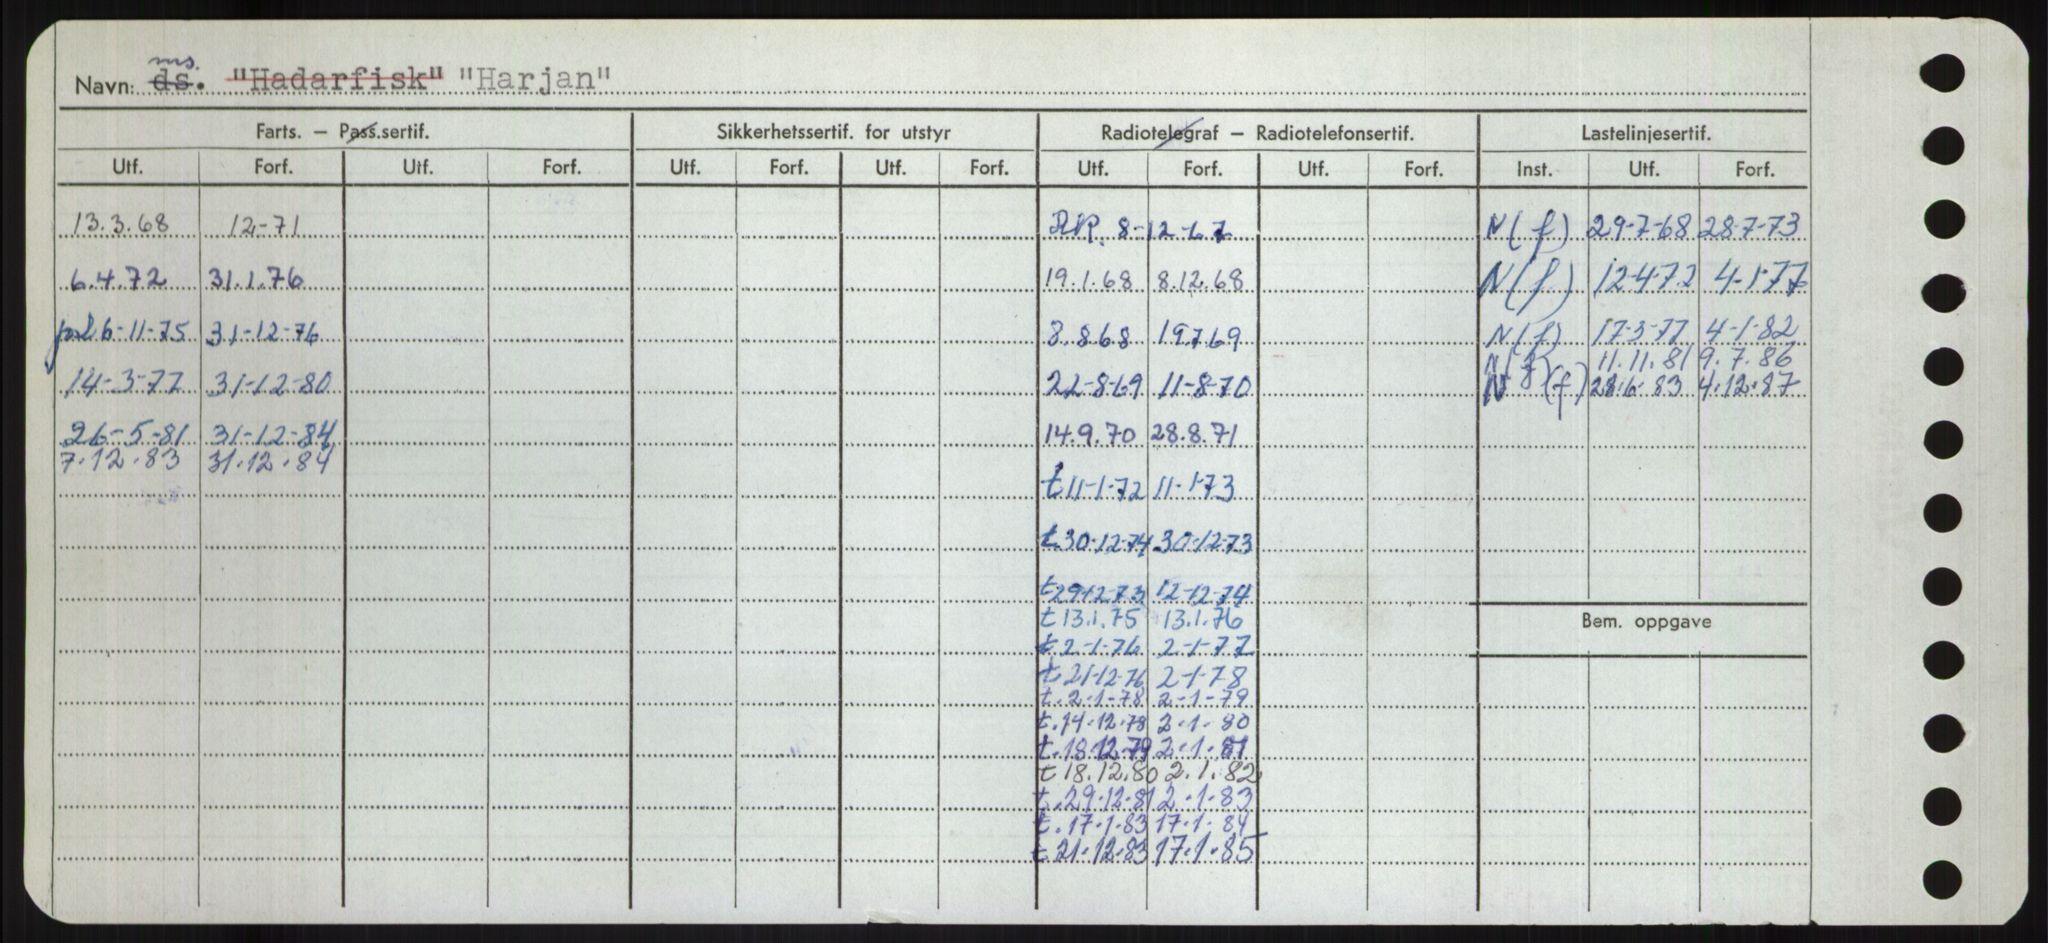 Navn: ds. ms. "Hadarfisk" "Harjan"
Farts. – Pass.sertif. Sikkerhetssertif. for utstyr Radiotelegraf – Radiotelefonsertif. Lastelinjesertif.
Utf. Forf. Utf. Forf. Utf. Forf. Utf. Forf. Utf. Forf. Utf. Forf. Inst. Utf. Forf.
13.3.68 12-71 8-12-67 N(f) 29-7-68 28-7-73
6.4.72 31.1.76 19.1.68 8.12.68 N(f) 12-4-72 4-1-77
26-11-75 31-12-76 8.8.68 19.7.69 N(f) 17-3-77 4-1-82
N(f) 11.11.81 9.7.86
14-3-77 31-12-80 22-8-69 11-8-70 N (f) 28.6.83 4.12.87
26-5-81 31-12-84 14.9.70 28.8.71
7.12.83 31.12.84
t 11-1-72 11-1-73
t.30-12-74 30-12-73
t 29-12-73 12-12-74
t 13.1.75 13.1.76
Bem. oppgave
t 2-1-76 2-1-77
t. 21-12-76 2-1-78
t. 2-1-78 2-1-79
t. 14.12.78 2.1.80
t. 18.12.79 2.1.81
t 18.12.80 2.1.82
t. 29.12.81 2.1.83
t. 17.1.83 17.1.84
t 21.12.83 17.1.85